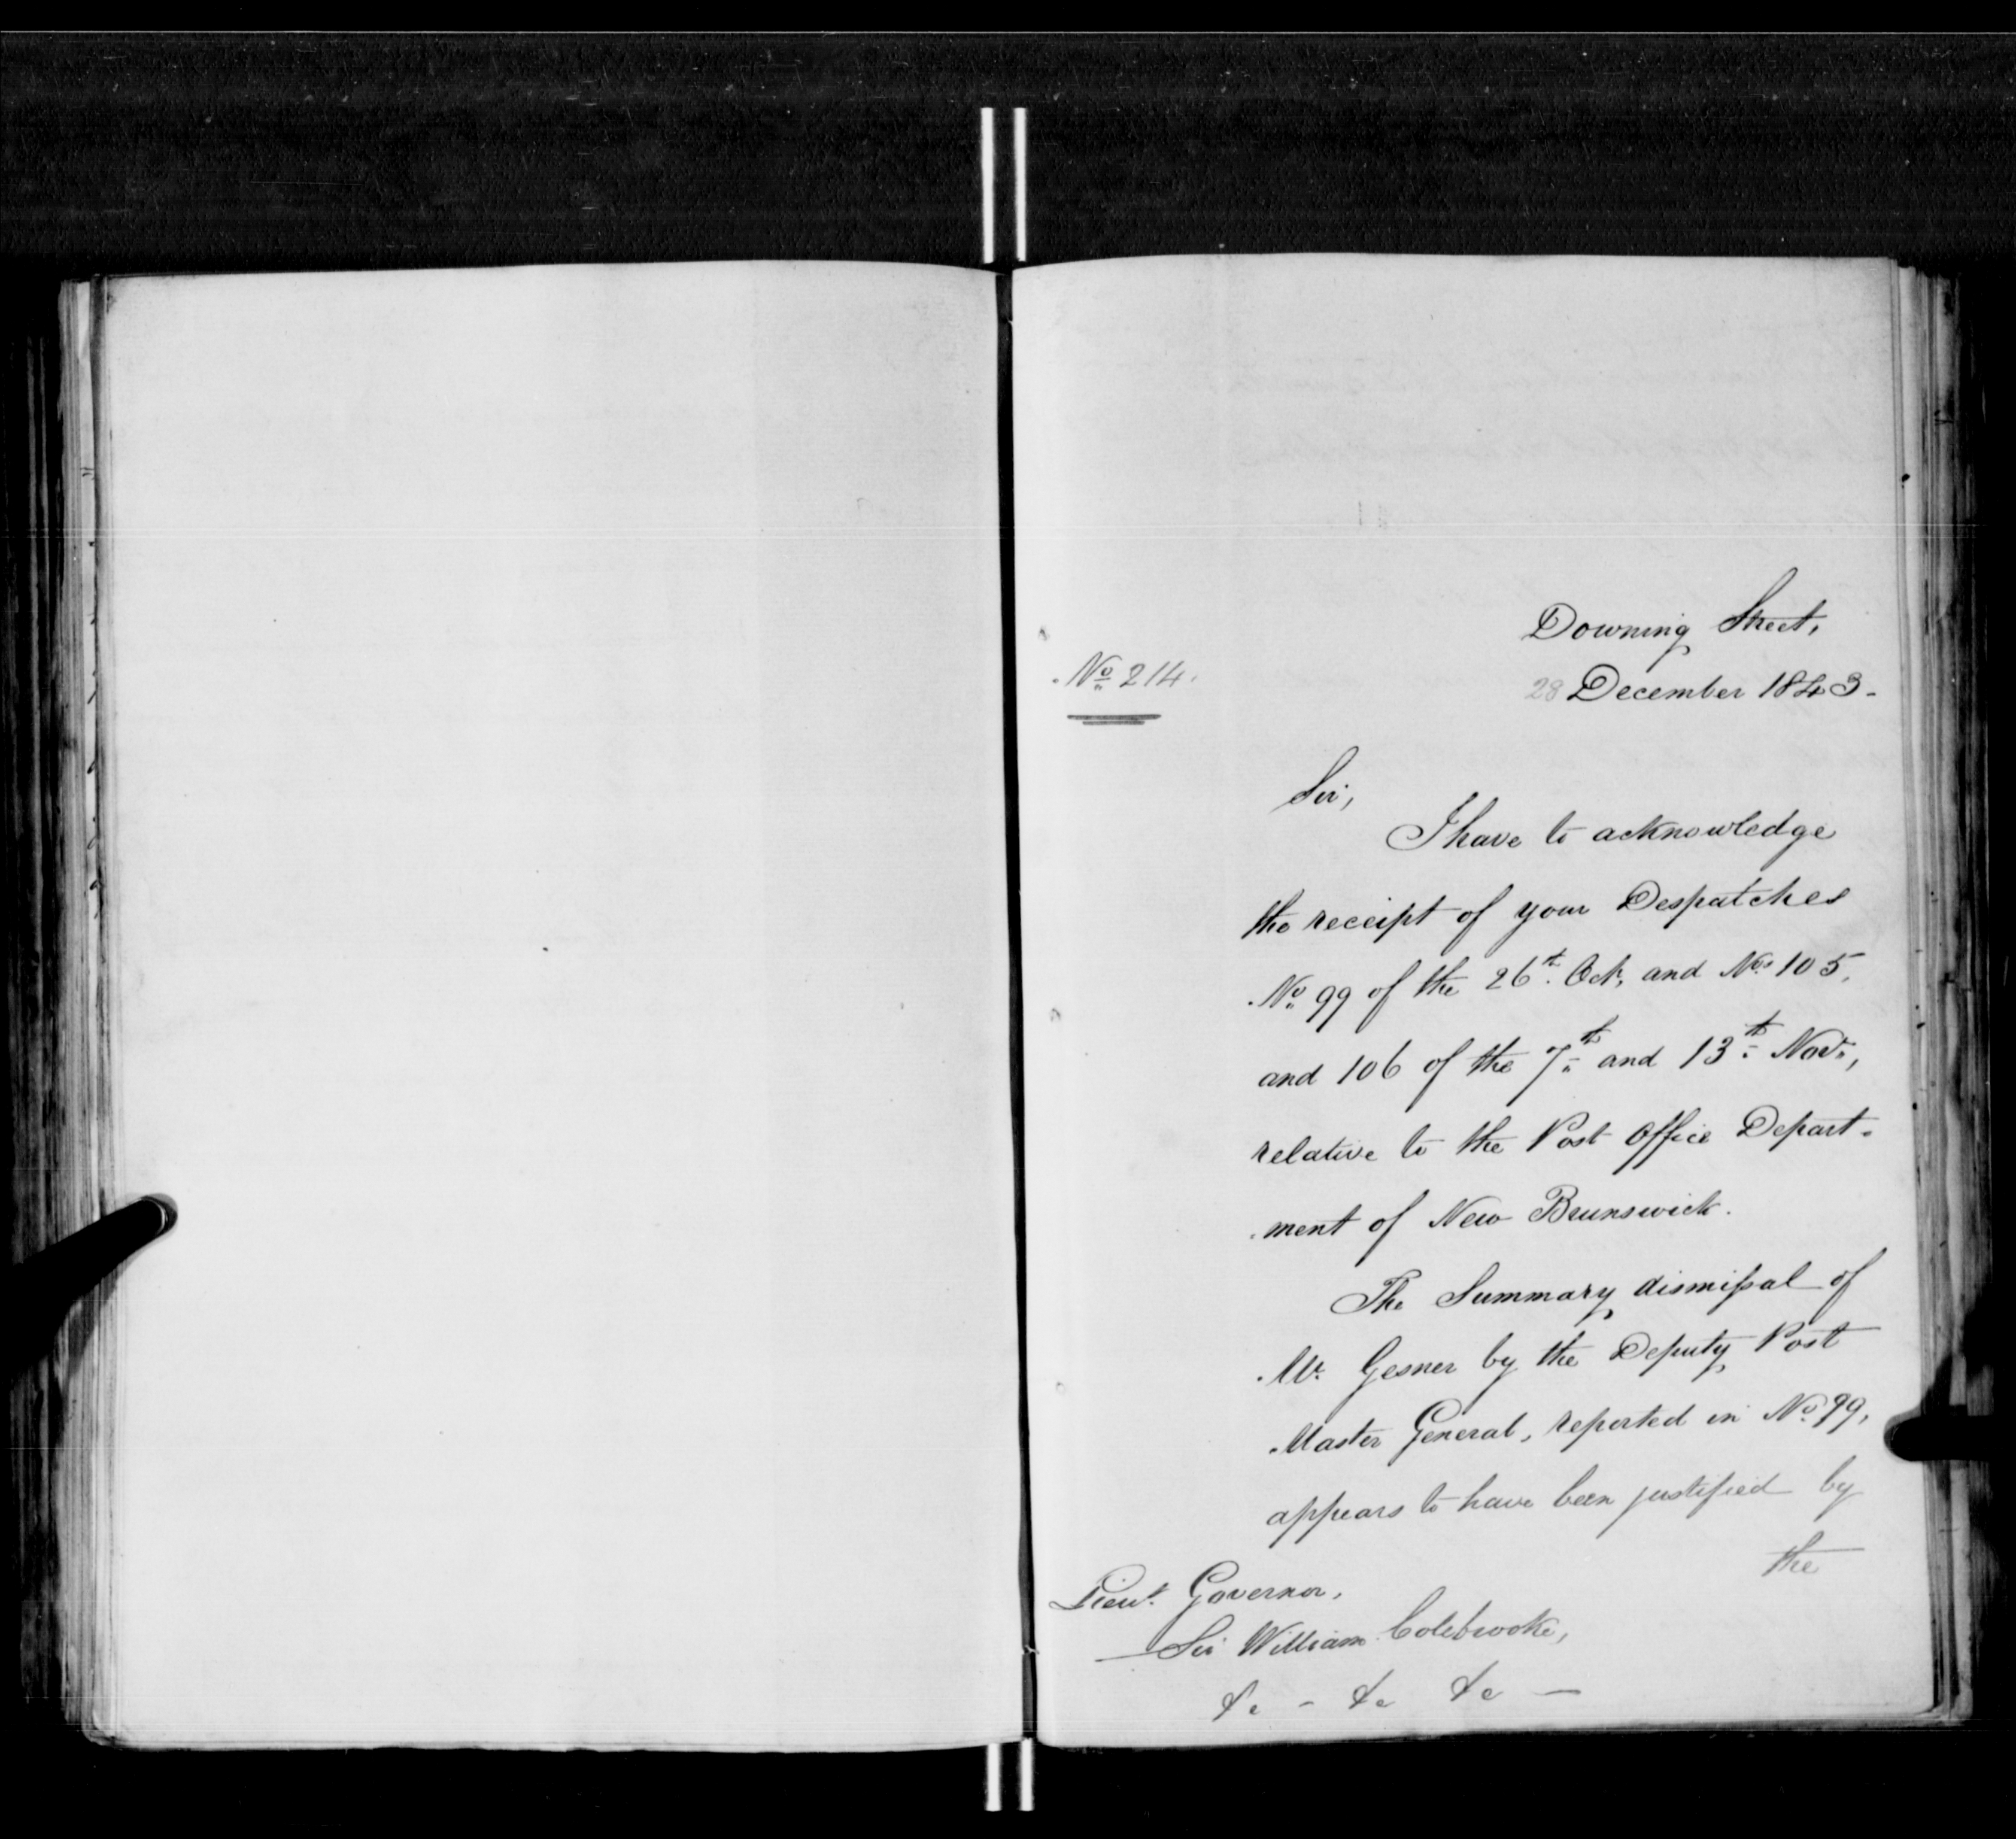 Downing Street,
No 214.
28 December 1843.
Sir,
I have to acknowledge
the receipt of your Despatches
No 99 of the 26th. Oct, and Nos 105,
and 106 of the 7th and 13th Novr,
relative to the Post Office Depart-
-ment of New Brunswick.
The Summary dismissal of
Mr. Gesner by the Deputy Post
Master General, reported in No 99,
appears to have been justified by
the
Lieut. Governor,
Sir William Colebrooke,
&c - &c &c -